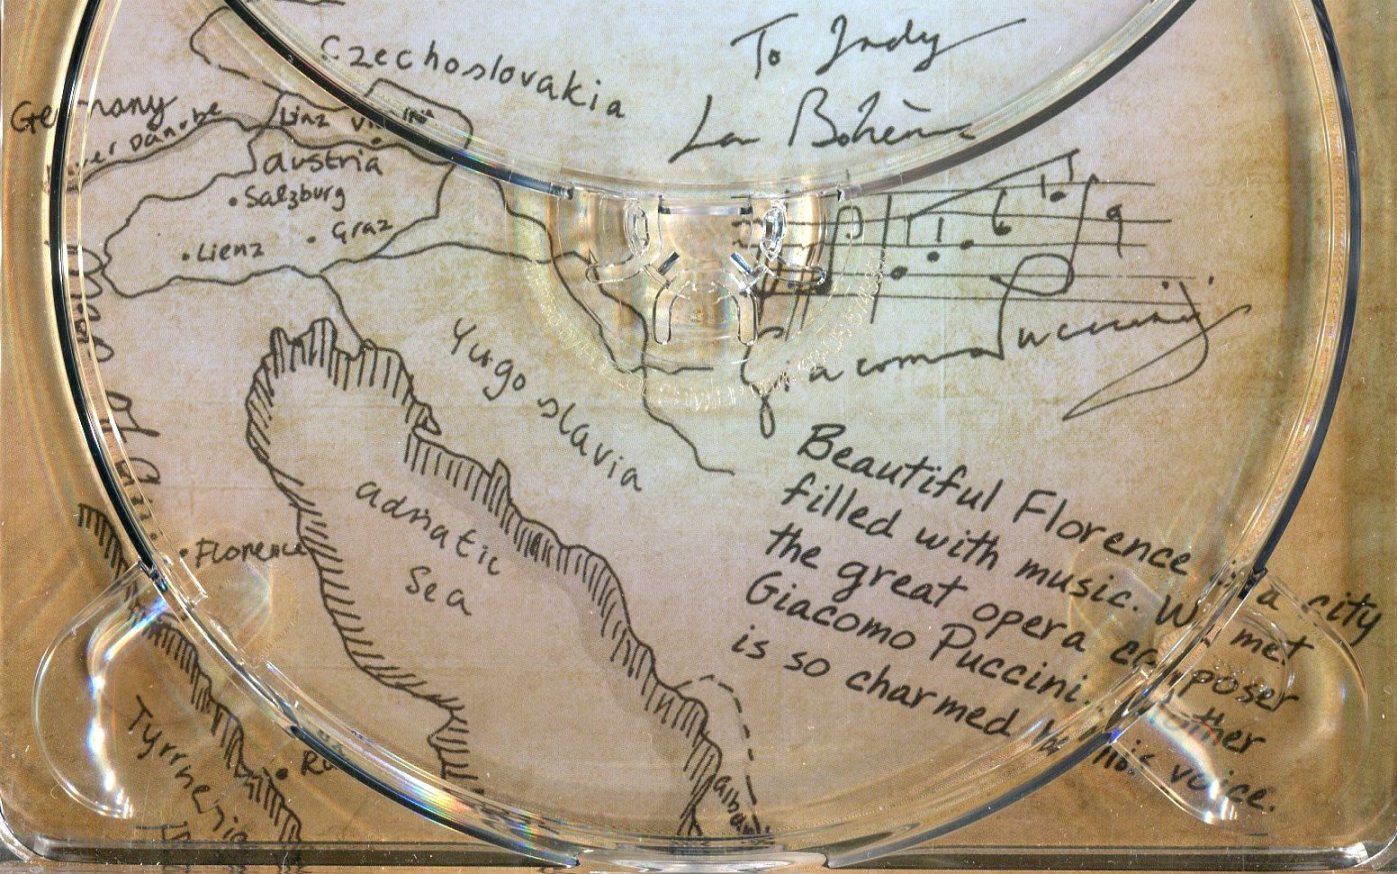 Czechoslovakia
To Indy
La Bohème
Germany
River Danube
Linz
austria
Salzburg
Graz
Lienz
Yugoslavia
adriatic
Sea
Florence
Tyrrhenian
Beautiful Florence is a city
filled with music. We met
the great opera composer
Giacomo Puccini. Mother
is so charmed by his voice.